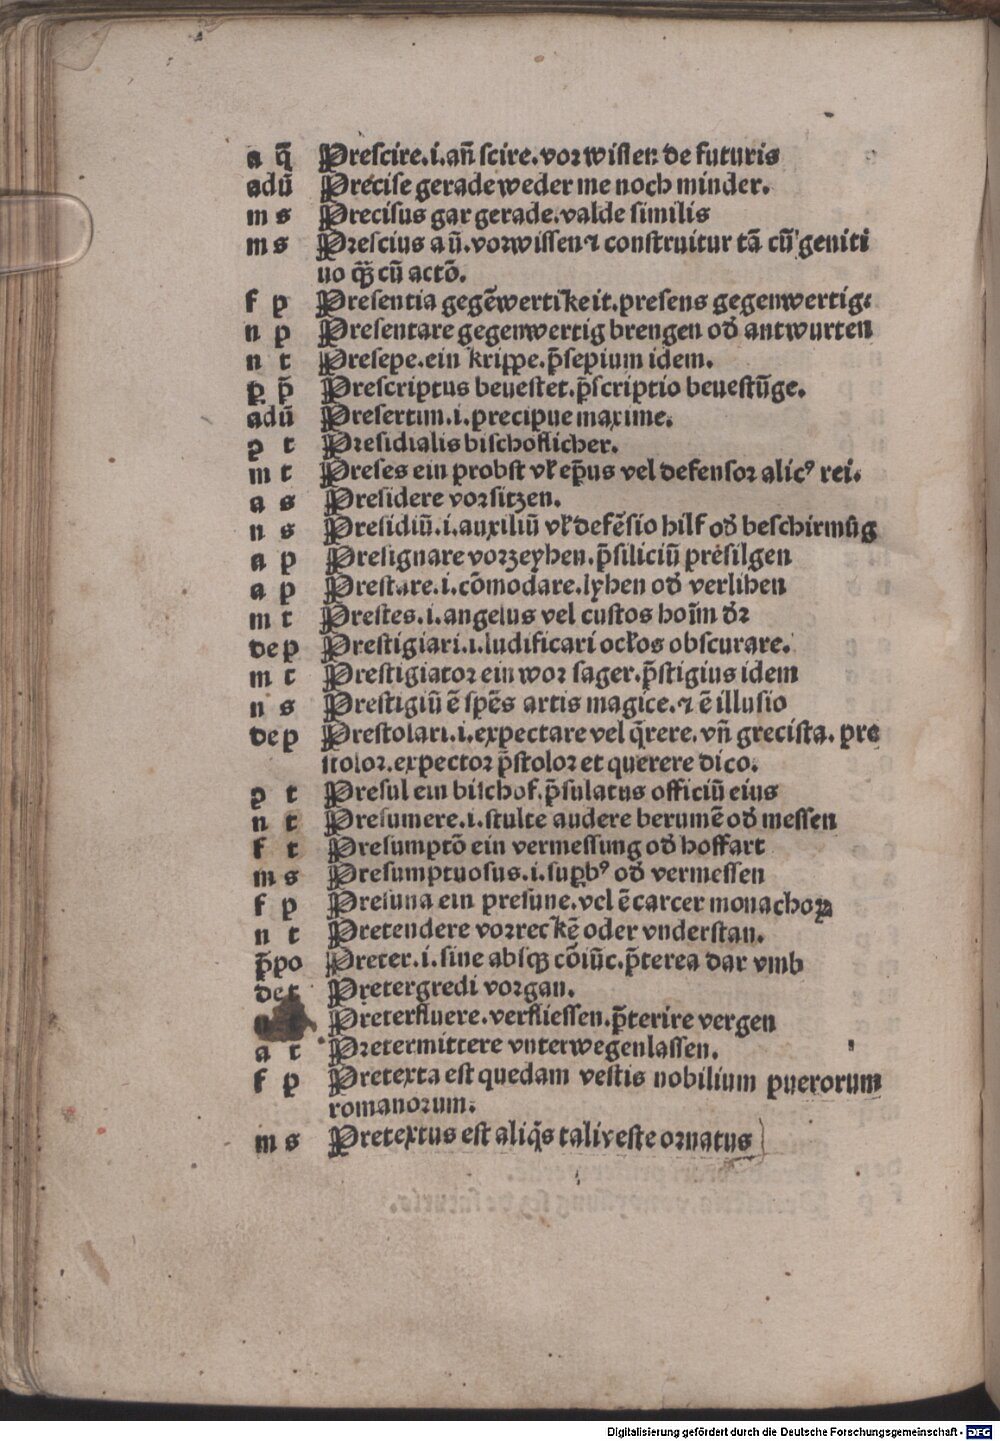 a q̄ Prescire.i.an̄ scire.vorwissen de futuris
adū Precise gerade weder me noch minder.
m s Precisus gar gerade.valde similis
m s Prescius a ū.vorwissen ⁊ construitur tā cū geniti
uo qꝫ̄ cū actō.
f p Presentia gegēwertikeit.presens gegenwertig.
n p Presentare gegenwertig brengen od̓ antwurten
n t Presepe.ein krippe.p̄sepium idem.
ꝑ p̄ Prescriptus beuestet.p̄scriptio beuestūge.
adū Presertim.i.precipue maxime.
ꝯ t Presidialis bischoflicher.
m t Preses ein probst vl̓ ep̄us vel defensor alicꝰ rei.
a s Presidere vorsitzen.
n s Presidiū.i.auxiliū vl̓ defēsio hilf od̓ beschirmūg
a p Presignare vorzeyhen.p̄siliciū presilgen
a p Prestare.i.cōmodare.lyhen od̓ verlihen
m t Prestes.i.angelus vel custos hoīm d̓r
dep Prestigiari.i.ludificari ocl̓os obscurare.
m t Prestigiator ein wor sager.p̄stigius idem
n s Prestigiū ē spēs artis magice.⁊ ē illusio
dep Prestolari.i.expectare vel q̄rere.vn̄ grecista.pre
stolor.expector p̄stolor et querere dico.
ꝯ t Presul ein bischof.p̄sulatus officiū eius
n t Presumere.i.stulte audere berumē od̓ messen
f t Presumptō ein vermessung od̓ hoffart
m s Presumptuosus.i.suꝑbꝰ od̓ vermessen
f p Presuna ein presune.vel ē carcer monachoꝝ
n t Pretendere vorreckē oder vnderstan.
p̄po Preter.i.sine absqꝫ cōiūc.p̄terea dar vmb
de t Pretergredi vorgan.
Preterfluere.verfliessen.p̄terire vergen
a t Pretermittere vnterwegenlassen.
f p Pretexta est quedam vestis nobilium puerorum
romanorum.
m s Pretextus est aliq̄s tali veste ornatus
Digitalisierung gefördert durch die Deutsche Forschungsgemeinschaft - DFG